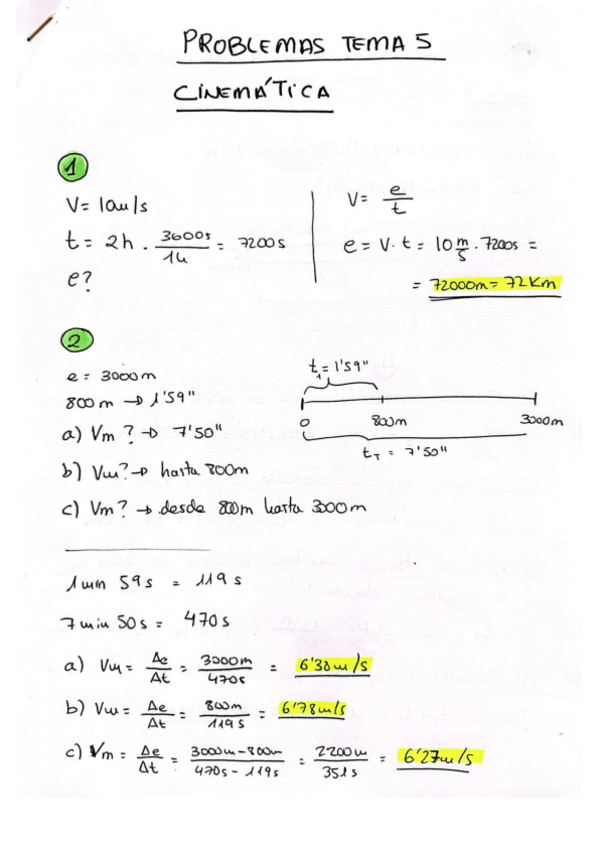 PROBLEMAS TEMA 5
CINEMÁTICA
1
V = 10m/s
t = 2h · 3600s/1h = 7200s
e?
V = e/t
e = V·t = 10 m/s · 7200s =
= 72000m = 72Km
2
e = 3000m
800m → 1'59"
a) Vm? → 7'50"
b) Vm? → hasta 800m
c) Vm? → desde 800m hasta 3000m
t₁ = 1'59"
0 800m 3000m
t_T = 7'50"
1min 59s = 119s
7min 50s = 470s
a) Vm = Δe/Δt = 3000m/470s = 6'38m/s
b) Vm = Δe/Δt = 800m/119s = 6'78m/s
c) Vm = Δe/Δt = 3000m-800m/470s-119s = 2200m/351s = 6'27m/s